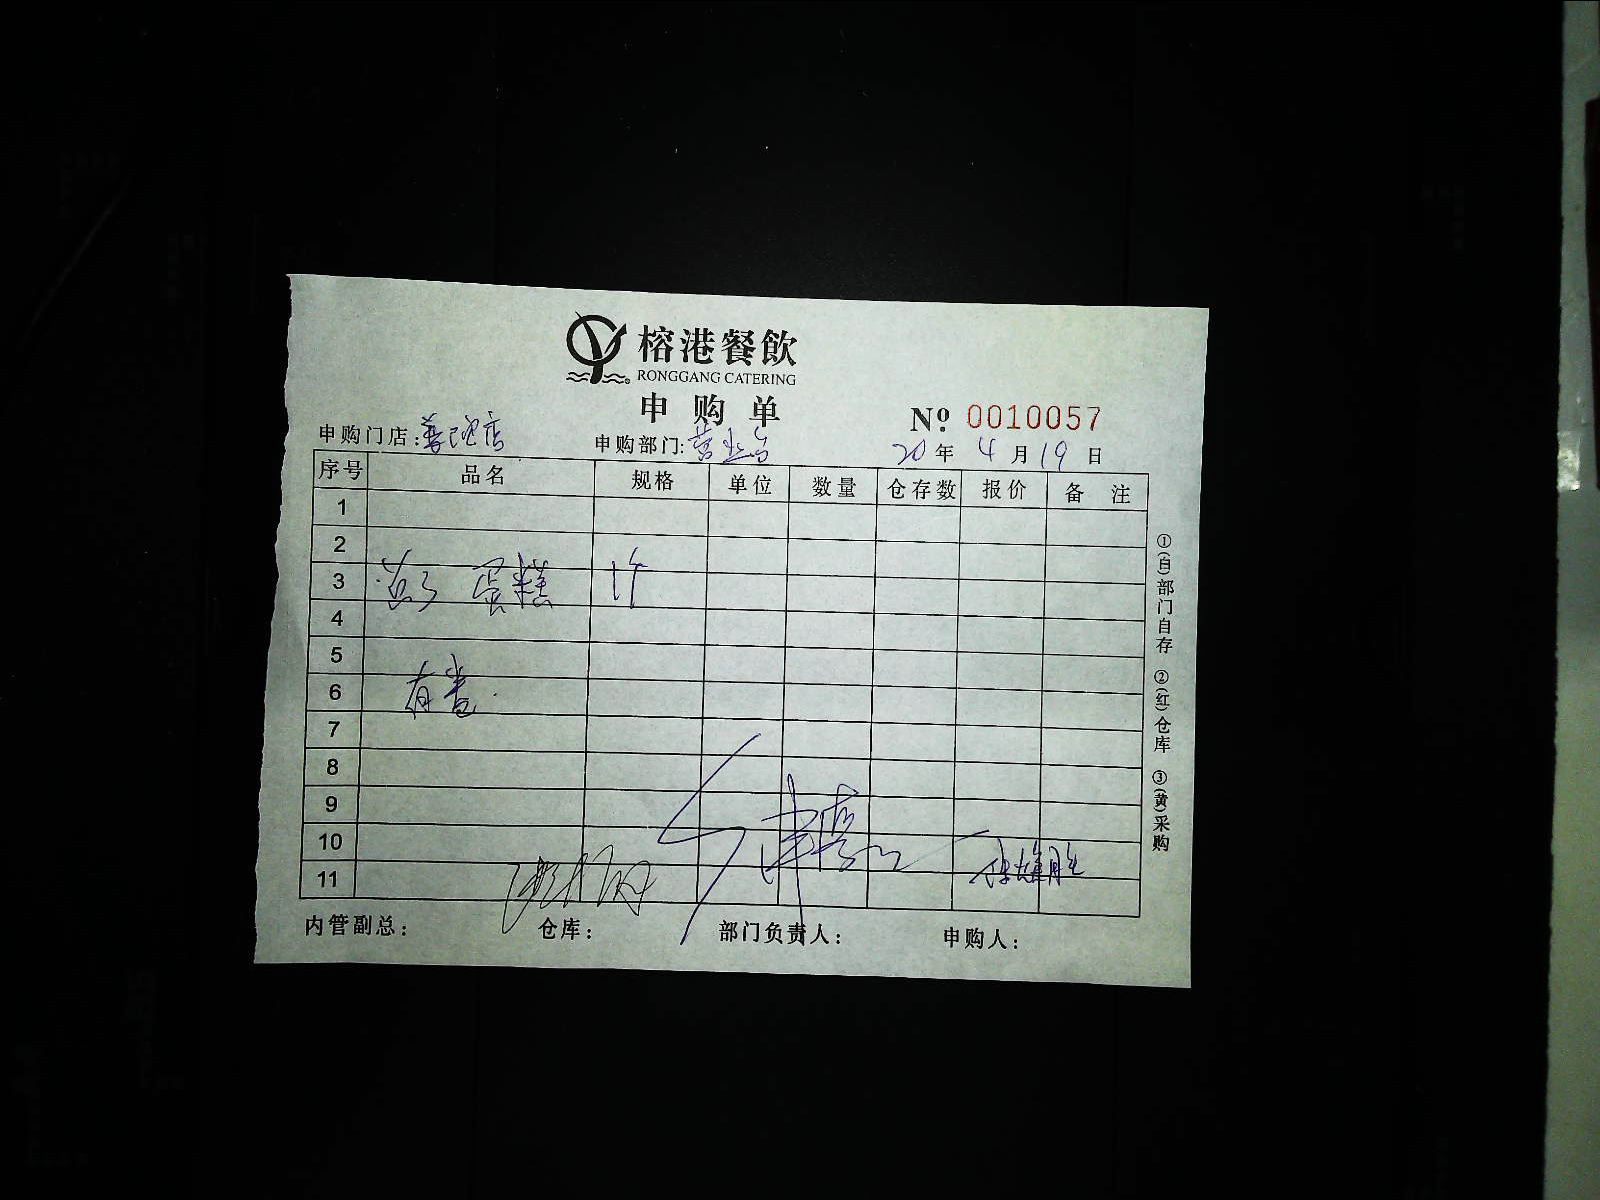 榕港餐飲
RONGGANG CATERING
申购单
№ 0010057
申购门店: 店 申购部门: 20年4月19日
序号 品名 规格 单位 数量 仓存数 报价 备注
1
2
3 蛋糕 1个
4
5
6
7
8
9
10
11
内管副总: 仓库: 部门负责人: 申购人:
①(白)部门自存 ②(红)仓库 ③(黄)采购